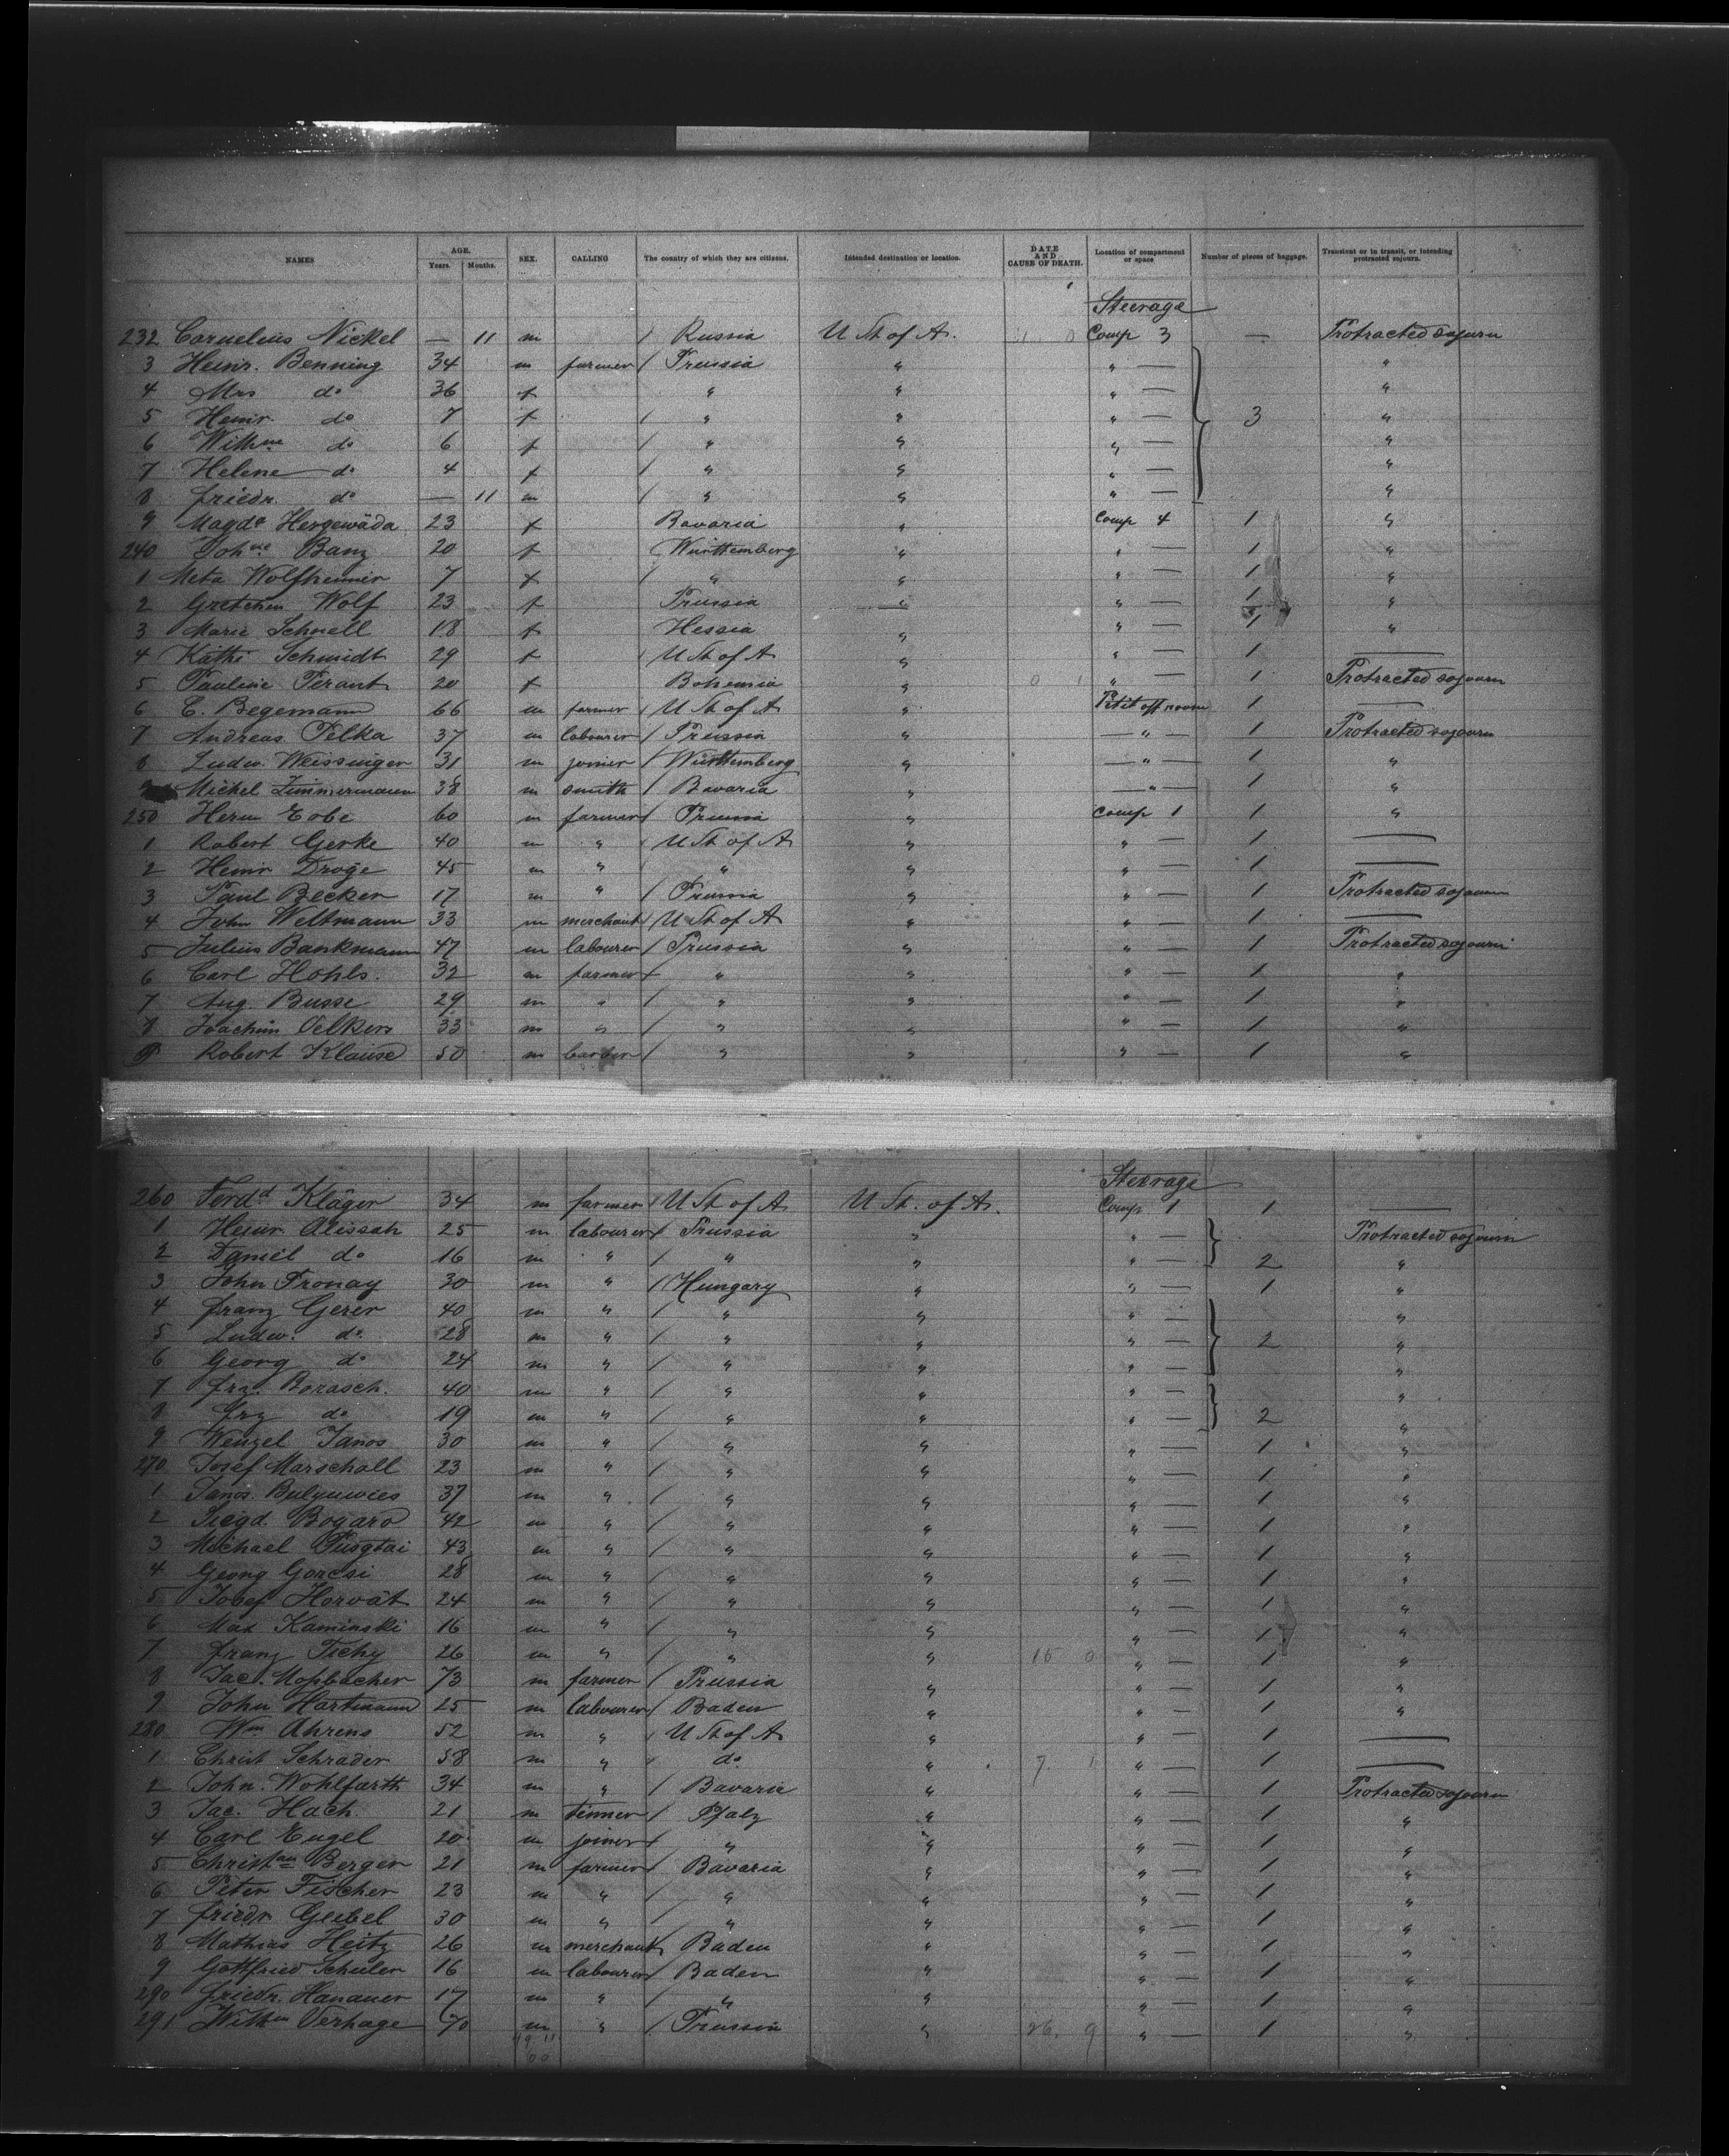 NAMES AGE. Years. Months. SEX. CALLING The country of which they are citizens. Intended destination or location. DATE AND CAUSE OF DEATH. Location of compartment or space Number of pieces of baggage. Transient or in transit, or intending protracted sojourn.
Steerage
232 Cornelius Nickel — 11 m / Russia U St of A. Comp 3 — Protracted sojourn
3 Heinr. Benning 34 m farmer / Prussia " " — "
4 Mrs do 36 f " " " — "
5 Heinr. do 7 f / " " " — 3 "
6 Wilhne do 6 f / " " " — "
7 Helene do 4 f / " " " — "
8 Friedr. do — 11 m / " " " — "
9 Magda Hergewäda 23 f Bavaria " Comp 4 1 "
240 Johne Banz 20 f Württemberg " " — 1 "
1 Meta Wolfheimer 7 f / " " " — 1 "
2 Gretchen Wolf 23 f Prussia " " — 1 "
3 Marie Schnell 18 f Hessia " " — 1 "
4 Käthi Schmidt 29 f U St of A " " — 1 —
5 Pauline Pirant 20 f Bohemia " 0 1 " — 1 Protracted sojourn
6 C. Begemann 66 m farmer / U St of A " Petit off room 1 —
7 Andreas Pelka 37 m labourer / Prussia " — " — 1 Protracted sojourn
8 Ludw. Weissinger 31 m joiner / Württemberg " — " — 1 "
9 Michel Zimmermann 38 m smith / Bavaria " — " — 1 "
250 Herm Eobe 60 m farmer / Prussia " Comp 1 1 "
1 Robert Gerke 40 m " / U St of A " " — 1 —
2 Heinr Dröge 45 m " " " " — 1 —
3 Paul Becker 17 m " / Prussia " " — 1 Protracted sojourn
4 John Weltmann 33 m merchant / U St of A " " — 1 —
5 Julius Bankmann 47 m labourer / Prussia " " — 1 Protracted sojourn
6 Carl Hohls. 32 m farmer / " " " — 1 "
7 Aug. Busse 29 m " / " " " — 1 "
8 Joachim Oelkers 33 m " / " " " — 1 "
9 Robert Klause 50 m barber / " " " — 1 "
Steerage
260 Ferdd Kläger 34 m farmer / U St of A U St. of A. Comp 1 1 —
1 Heinr. Alissah 25 m labourer / Prussia " " — Protracted sojourn
2 Daniel do 16 m " / " " " — 2 "
3 John Pronay 30 m " / Hungary " " — 1 "
4 Franz Gerer 40 m " / " " " — "
5 Ludw. do 28 m " / " " " — 2 "
6 Georg do 24 m " / " " " — "
7 Frz. Borasch. 40 m " / " " " — "
8 Frz do 19 m " / " " " — 2 "
9 Wenzel Janos 30 m " / " " " — 1 "
270 Josef Marschall 23 m " / " " " — 1 "
1 Janos 37 m " / " " " — 1 "
2 Siegd. Bogaro 42 m " / " " " — 1 "
3 Michael 43 m " / " " " — 1 "
4 Georg Gorcsi 28 m " / " " " — 1 "
5 Josef Horvát 24 m " / " " " — 1 "
6 Max Kaminski 16 m " / " " " — 1 "
7 Franz Tichy 26 m " / " " 15 0 " — 1 "
8 Jac. Mossbacher 73 m farmer / Prussia " " — 1 "
9 John Hartmann 25 m labourer / Baden " " — 1 "
280 Wm Ahrens 52 m " / U St of A " " — 1 —
1 Christ Schrader 58 m " / do " 7 1 " — 1 —
2 John. Wohlfarth 34 m " / Bavaria " " — 1 Protracted sojourn
3 Jac. Hach. 21 m tinner / Pfalz " " — 1 "
4 Carl Engel 20 m joiner / " " " — 1 "
5 Christian Berger 21 m farmer / Bavaria " " — 1 "
6 Peter Fischer 23 m " / " " " — 1 "
7 Friedr Geibel 30 m " / " " " — 1 "
8 Mathias Heitz 26 m merchant Baden " " — 1 "
9 Gottfried Schuler 16 m labourer / Baden " " — 1 "
290 Friedr. Hanauer 17 m " / " " " — 1 "
291 Wilhm Verhage 70 m " / Prussia " 26. 9 " — 1 "